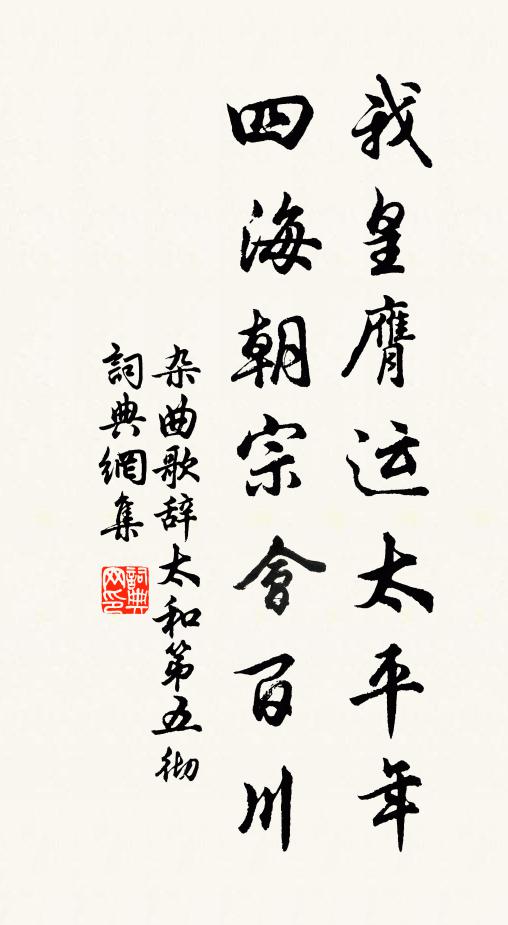 我皇膺运太平年
四海朝宗會百川
杂曲歌辞太和第五彻
詞典網集
詞典网印